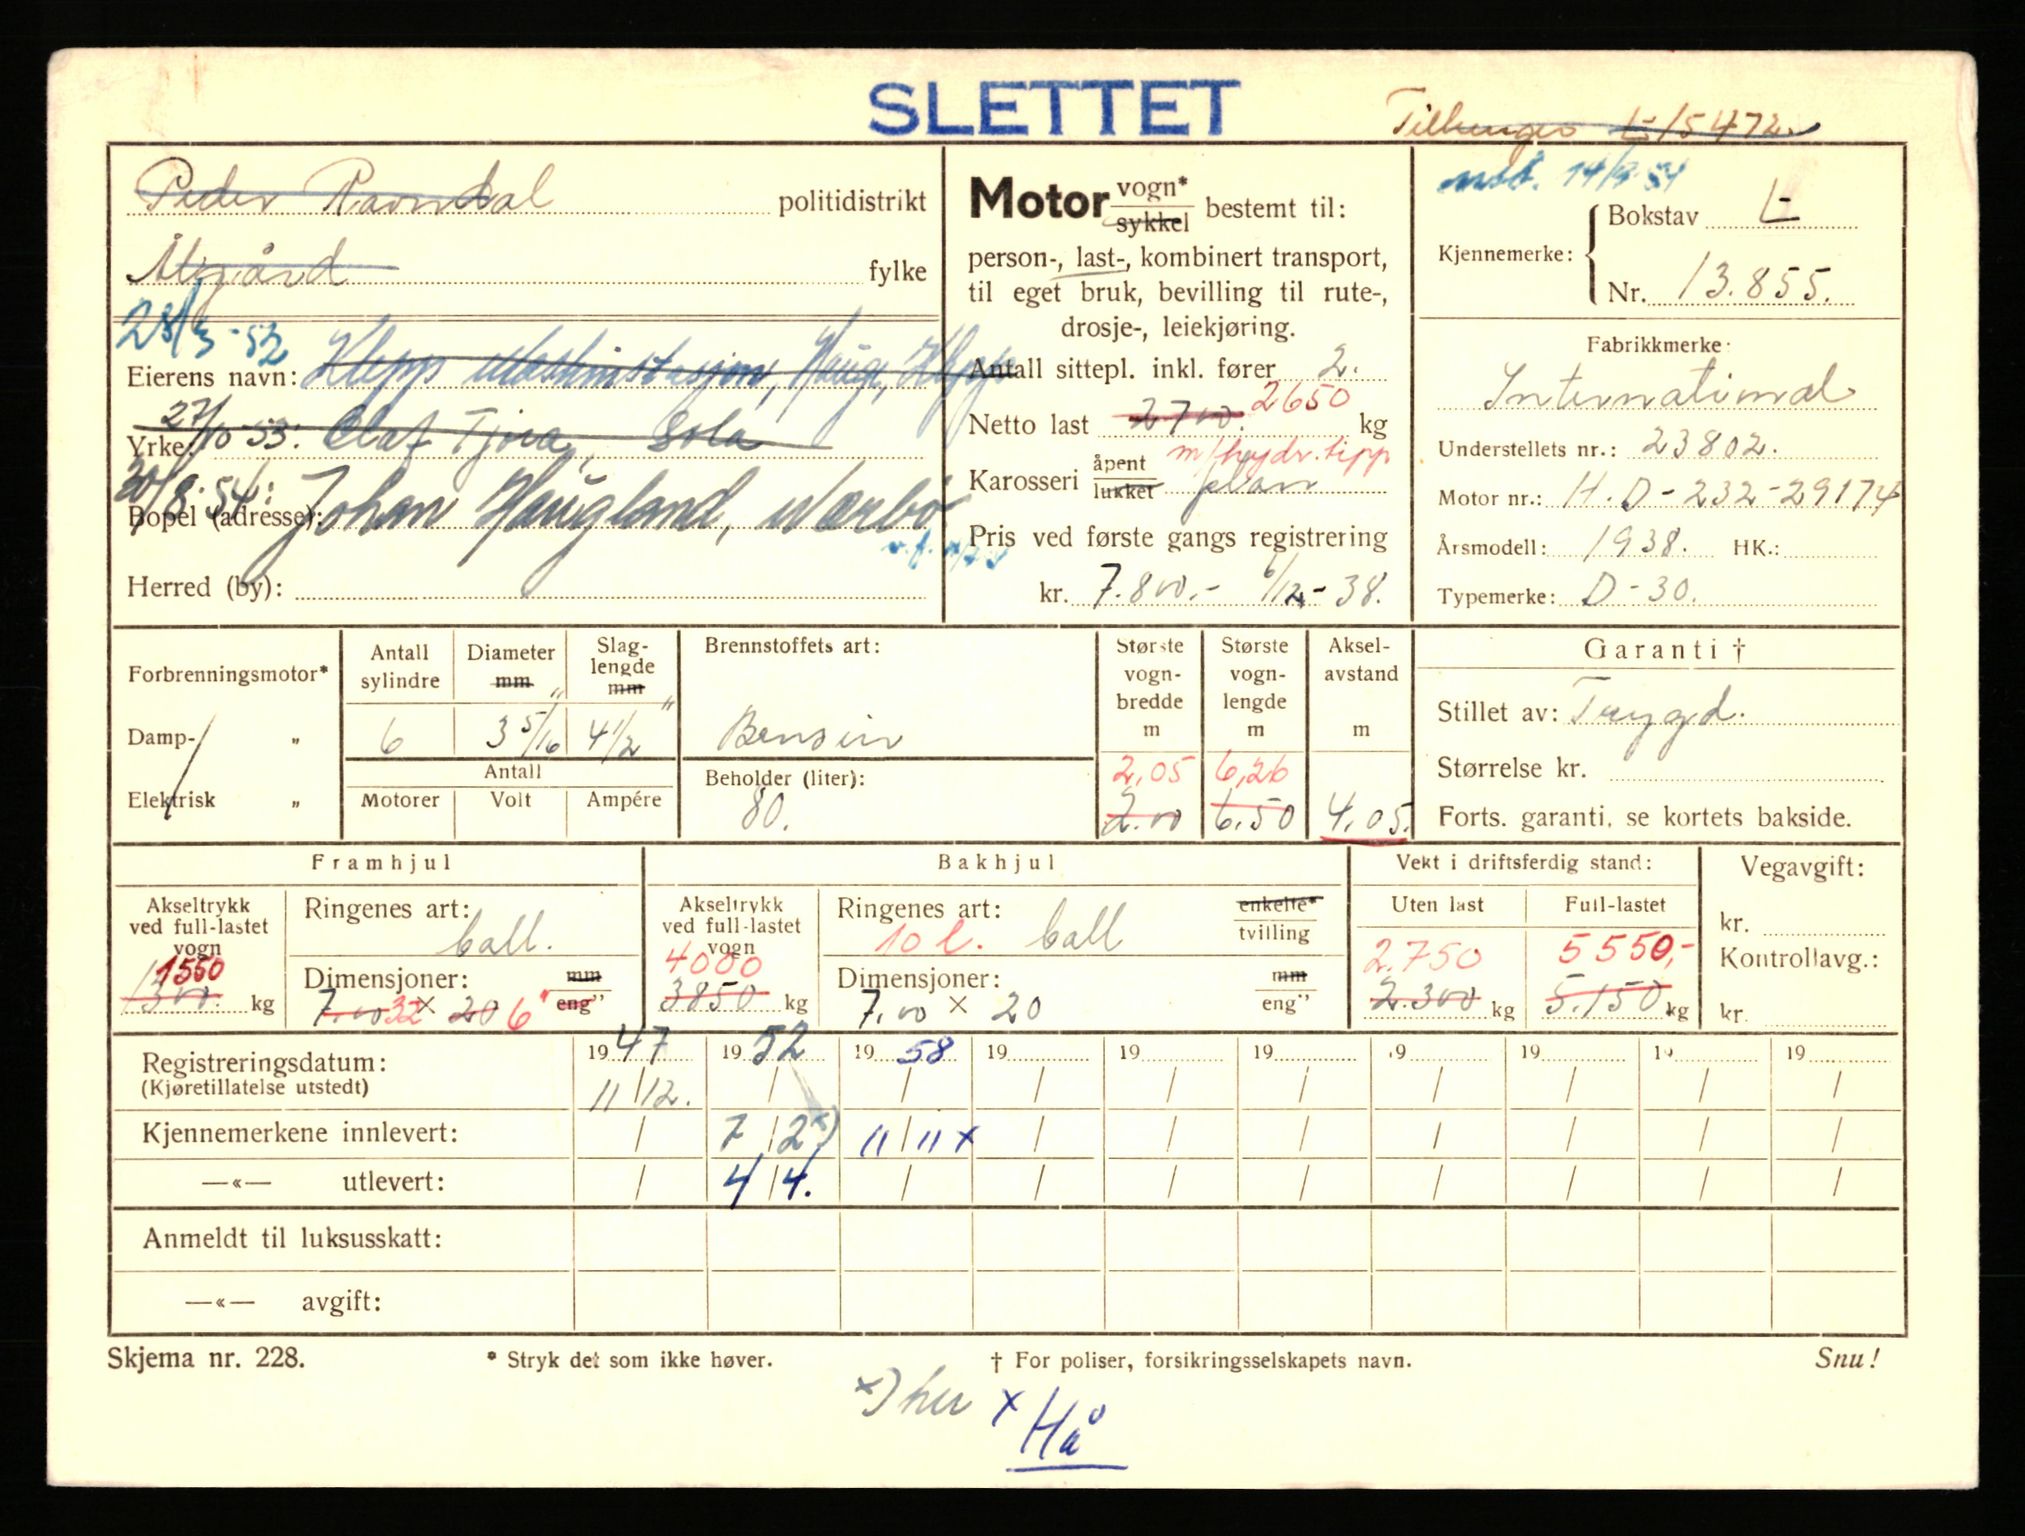 SLETTET
Tilhenger L-15472
Peder Ravndal politidistrikt
Ålgård fylke
28/3-52
Eierens navn: Klepp Maskinstasjon, Haug, Klepp
27/10-53: Olaf Tjora, Sola
Yrke:
30/8-54: Johan Haugland, Nærbø
Bopel (adresse):
Herred (by):
Motor vogn* sykkel bestemt til:
person-, last-, kombinert transport,
til eget bruk, bevilling til rute-,
drosje-, leiekjøring.
Antall sittepl. inkl. fører 2.
Netto last 2700. 2650 kg
m/hydr. tipp
Karosseri åpent lukket plan
Pris ved første gangs registrering
kr. 7.800.- 6/12-38.
14/9-51
Kjennemerke: Bokstav L-
Nr. 13.855.
Fabrikkmerke:
International
Understellets nr.: 23802.
Motor nr.: H.D-232-29174
Årsmodell: 1938. HK.:
Typemerke: D-30.
Forbrenningsmotor*
Damp- „
Elektrisk „
Antall sylindre Diameter mm " Slaglengde mm "
6 3 5/16 4 1/2
Antall
Motorer Volt Ampére
Brennstoffets art:
Bensin
Beholder (liter):
80.
Største vognbredde m
2,05
2.00
Største vognlengde m
6,26
6,50
Akselavstand m
4,05.
Garanti †
Stillet av: Trygd.
Størrelse kr.
Forts. garanti, se kortets bakside.
Framhjul
Akseltrykk ved full-lastet vogn
1550
1300. kg
Ringenes art:
ball.
Dimensjoner: mm eng"
7.00 32 × 20 6"
Bakhjul
Akseltrykk ved full-lastet vogn
4000
3850 kg
Ringenes art: enkelte* tvilling
10 l. ball
Dimensjoner: mm eng"
7.00 × 20
Vekt i driftsferdig stand:
Uten last Full-lastet
2.750 5550,-
2.300 kg 5.150 kg
Vegavgift:
kr.
Kontrollavg.:
kr.
Registreringsdatum: 1947 1952 1958 19 19 19 19 19 19 19
(Kjøretillatelse utstedt) 11/12. / / / / / / / / /
Kjennemerkene innlevert: / 7/2 x) 11/11 x / / / / / / /
—«— utlevert: / 4/4. / / / / / / / /
Anmeldt til luksusskatt:
—«— avgift:
Skjema nr. 228. * Stryk det som ikke høver. † For poliser, forsikringsselskapets navn. Snu!
x) her x Hå